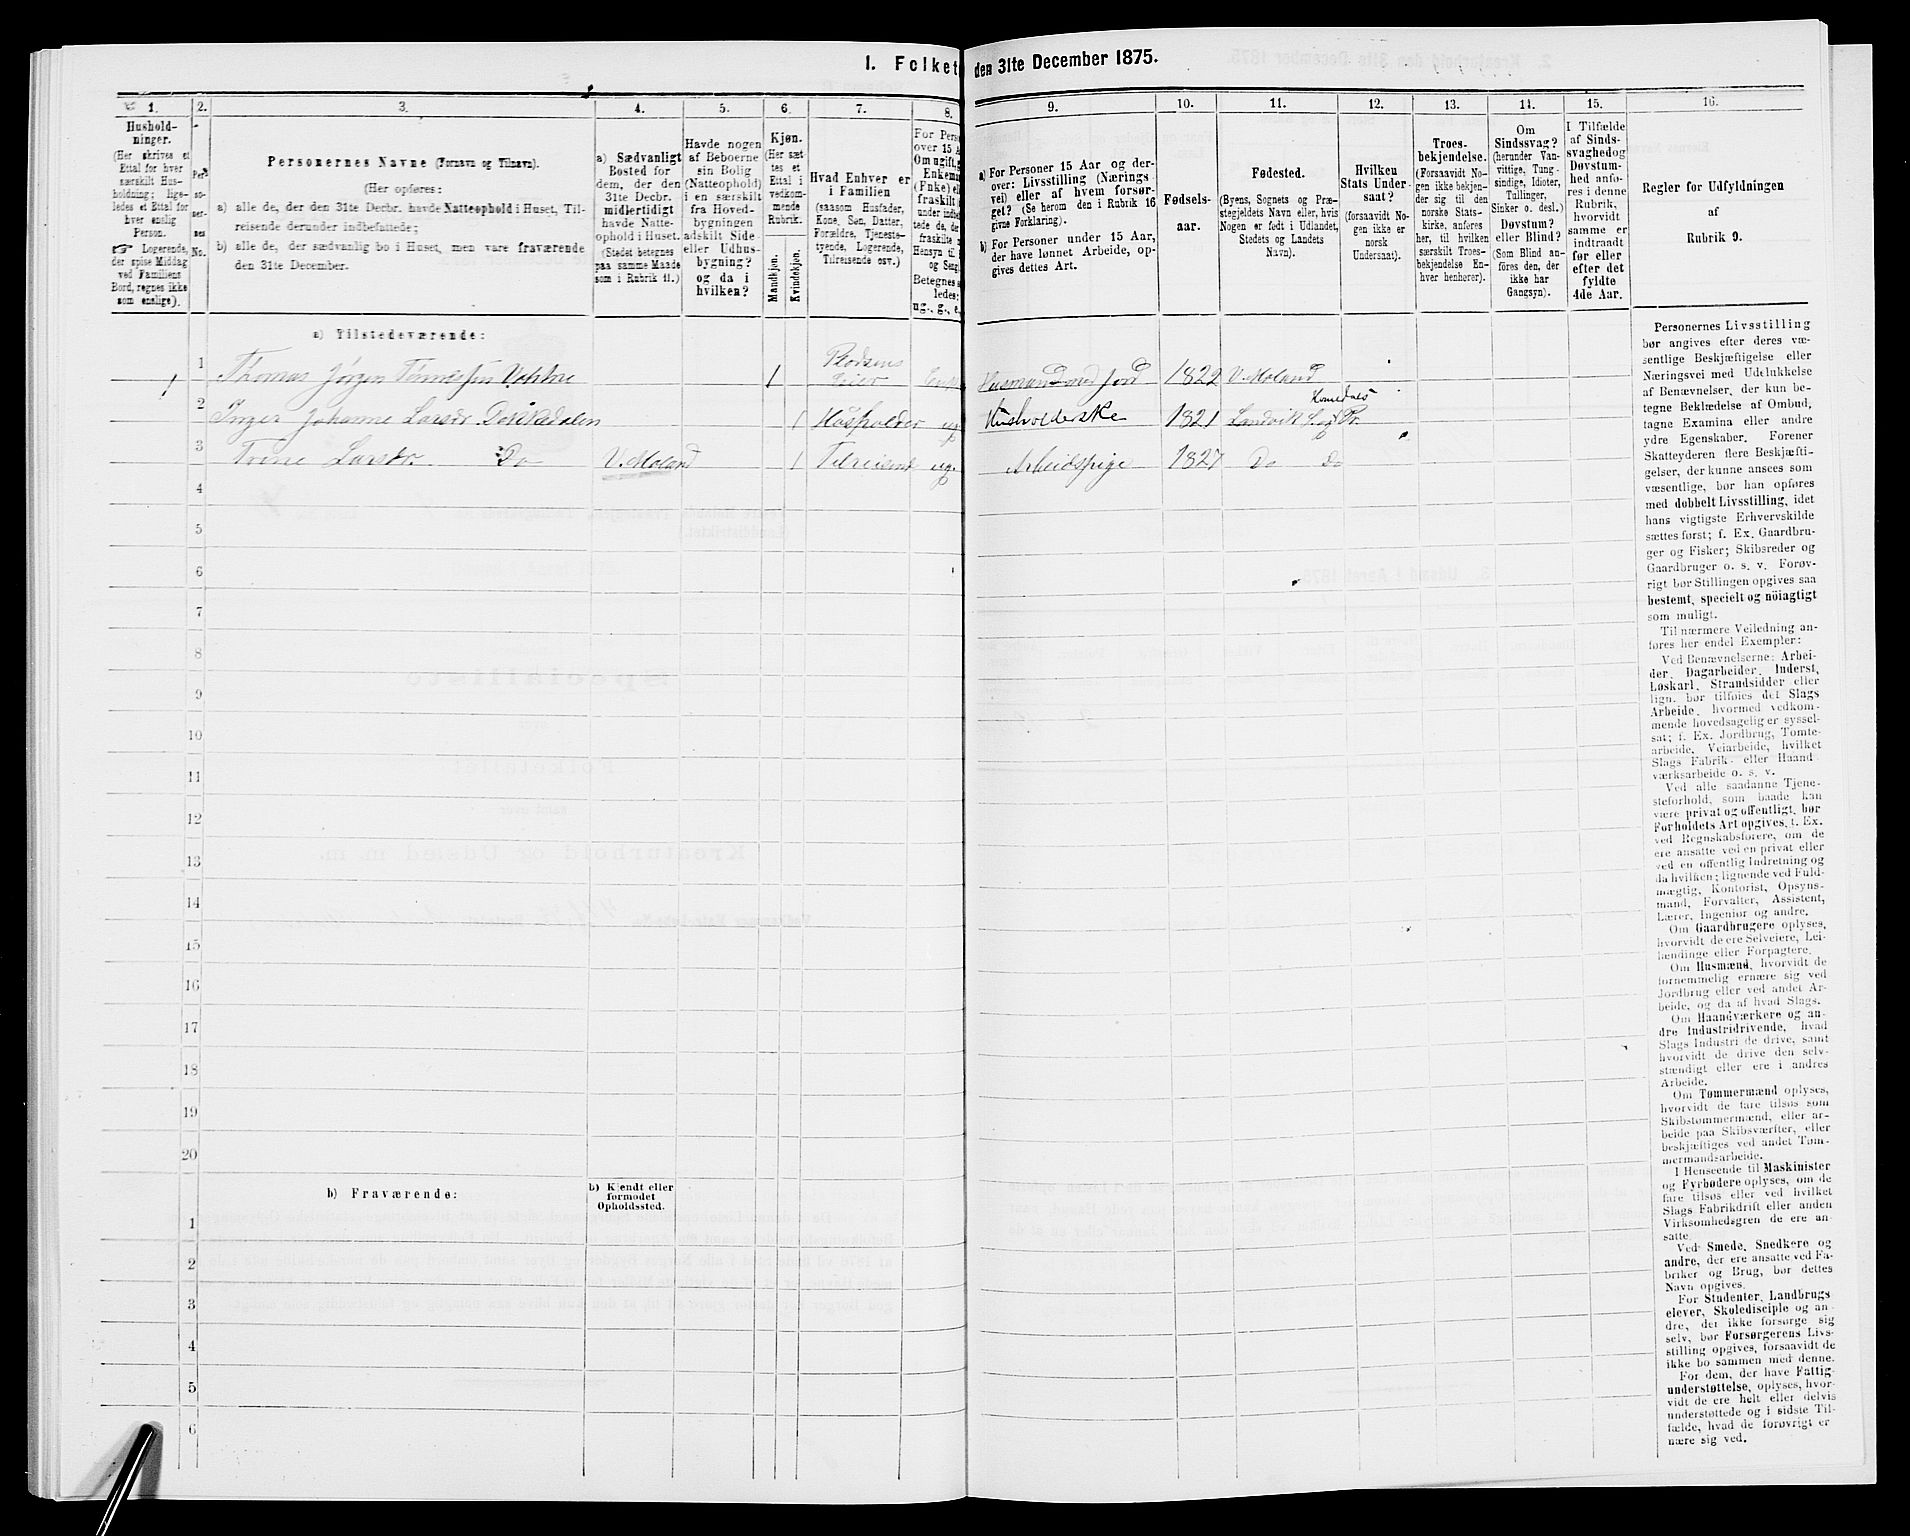 1. Folket den 31te December 1875.
1. 2. 3. 4. 5. 6. 7. 8. 9. 10. 11. 12. 13. 14. 15. 16.
Hushold-
ninger.
(Her skrives et
Ettal for hver
særskilt Hus-
holdning; lige-
ledes et Ettal for
hver enslig
Person.
Logerende,
der spise Middag
ved Familiens
Bord, regnes ikke
som enslige).
Per-
so-
ner-
nes
No.
Personernes Navne (Fornavn og Tilnavn).
(Her opføres:
a) alle de, der den 31te Decbr. havde Natteophold i Huset, Til-
reisende derunder indbefattede;
b) alle de, der sædvanlig bo i Huset, men vare fraværende
den 31te December.
a) Sædvanligt
Bosted for
dem, der den
31te Decbr.
midlertidigt
havde Natte-
ophold i Huset.
(Stedet betegnes
paa samme Maade
som i Rubrik 11.)
Havde nogen
af Beboerne
sin Bolig
(Natteophold)
i en særskilt
fra Hoved-
bygningen
adskilt Side-
eller Udhus-
bygning?
og da i
hvilken?
Kjøn.
(Her sæt-
tes et
Ettal i
vedkom-
mende
Rubrik.
Mandkjøn.
Kvindekjøn.
Hvad Enhver er
i Familien
(saasom Husfader,
Kone, Søn, Datter,
Forældre, Tjeneste-
tyende, Logerende,
Tilreisende osv.)
For Perso
over 15 A
Om ugift, g
Enkem
(Fnke) el
fraskilt
under indb
tede de, de
fraskilte
Hensyn til
og Seng
Betegnes s
ledes:
ug., g., e.,
a) For Personer 15 Aar og der-
over: Livsstilling (Nærings-
vei) eller af hvem forsør-
get? (Se herom den i Rubrik 16
givne Forklaring).
b) For Personer under 15 Aar,
der have lønnet Arbeide, op-
gives dettes Art.
Fødsels-
aar.
Fødested.
(Byens, Sognets og Præ-
stegjeldets Navn eller, hvis
Nogen er født i Udlandet,
Stedets og Landets
Navn).
Hvilken
Stats Under-
saat?
(forsaavidt No-
gen ikke er
norsk
Undersaat).
Troes-
bekjendelse.
(Forsaavidt No-
gen ikke bekjen-
der sig til den
norske Stats-
kirke, anføres
her, til hvilken
særskilt Troes-
bekjendelse En-
hver henhører).
Om
Sindssvag?
(herunder Van-
vittige, Tung-
sindige, Idioter,
Tullinger,
Sinker o. desl.)
Døvstum?
eller Blind?
(Som Blind an-
føres den, der
ikke har
Gangsyn).
I Tilfælde
af Sinds-
svaghed og
Døvstum-
hed anfø-
res i denne
Rubrik,
hvorvidt
samme er
indtraadt
før eller
efter det
fyldte
4de Aar.
Regler for Udfyldningen
af
Rubrik 9.
a) Tilstedeværende:
1 1 Thomas Jørgen Tønnessen 1 Plodsens Eier Husmand med Jord 1822 V. Moland
2 Inger Johanne Larsdr 1 Husholder ug Husholderske 1821 Landvik S. Pr.
3 Trine Larsdr. Do V. Moland 1 Tilreisend ug. Arbeidspige 1827 Do Do
4
5
6
7
8
9
10
11
12
13
14
15
16
17
18
19
20
b) Fraværende:
b) Kjendt eller
formodet
Opholdssted.
1
2
3
4
5
6
Personernes Livsstilling
bør angives efter deres væ-
sentlige Beskjæftigelse eller
Næringsvei med Udelukkelse
af Benævnelser, der kun be-
tegne Beklædelse af Ombud,
tagne Examina eller andre
ydre Egenskaber. Forener
Skatteyderen flere Beskjæfti-
gelser, der kunne ansees som
væsentlige, bør han opføres
med dobbelt Livsstilling, idet
hans vigtigste Erhvervskilde
sættes først; f. Ex. Gaardbru-
ger og Fisker; Skibsreder og
Gaardbruger o. s. v. Forøv-
rigt bør Stillingen opgives saa
bestemt, specielt og nöiagtigt
som muligt.
Til nærmere Veiledning an-
føres her endel Exempler:
Ved Benævnelserne: Arbei-
der, Dagarbeider, Inderst,
Løskarl, Strandsidder eller
lign. bør tilføies det Slags
Arbeide, hvormed vedkom-
mende hovedsagelig er syssel-
sat; f. Ex. Jordbrug, Tomte-
arbeide, Veiarbeide, hvilket
Slags Fabrik- eller Haand-
værksarbeide o. s. v.
Ved alle saadanne Tjene-
steforhold, som baade kan
være privat og offentligt, bør
Forholdets Art opgives, f. Ex.
ved Regnskabsførere, om de
ere ansatte ved en privat eller
ved en offentlig Indretning og
da hvilken; lignende ved Fuld-
mægtig, Kontorist, Opsyns-
mand, Forvalter, Assistent,
Lærer, Ingeniør og andre.
Om Gaardbrugere oplyses,
hvorvidt de ere Selveiere, Lei-
lændinge eller Forpagtere.
Om Husmænd, hvorvidt de
fornemmelig ernære sig ved
Jordbrug eller ved andet Ar-
beide, og da af hvad Slags.
Om Haandværkere og an-
dre Industridrivende, hvad
Slags Industri de drive, samt
hvorvidt de drive den selv-
stændigt eller ere i andres
Arbeide.
Om Tømmermænd oplyses,
hvorvidt de fare tilsøs som
Skibstømmermænd, eller ar-
beide paa Skibsværfter, eller
beskjæftiges ved andet Tøm-
mermandsarbeide.
I Henseende til Maskinister
og Fyrbødere oplyses, om de
fare tilsøs eller ved hvilket
Slags Fabrikdrift eller anden
Virksomhedsgren de ere an-
satte.
Ved Smede, Snedkere og
andre, der ere ansatte ved Fa-
briker og Brug, bør dettes
Navn opgives.
For Studenter, Landbrugs-
elever, Skoledisciple og an-
dre, der ikke forsørge sig
selv, bør Forsørgerens Livs-
stilling opgives, forsaavidt de
ikke bo sammen med denne.
For dem, der have Fattig-
understøttelse, oplyses, hvor-
vidt de ere helt eller delvis
understøttede og i sidste Til-
fælde, hvad de forøvrigt er
nære sig ved.